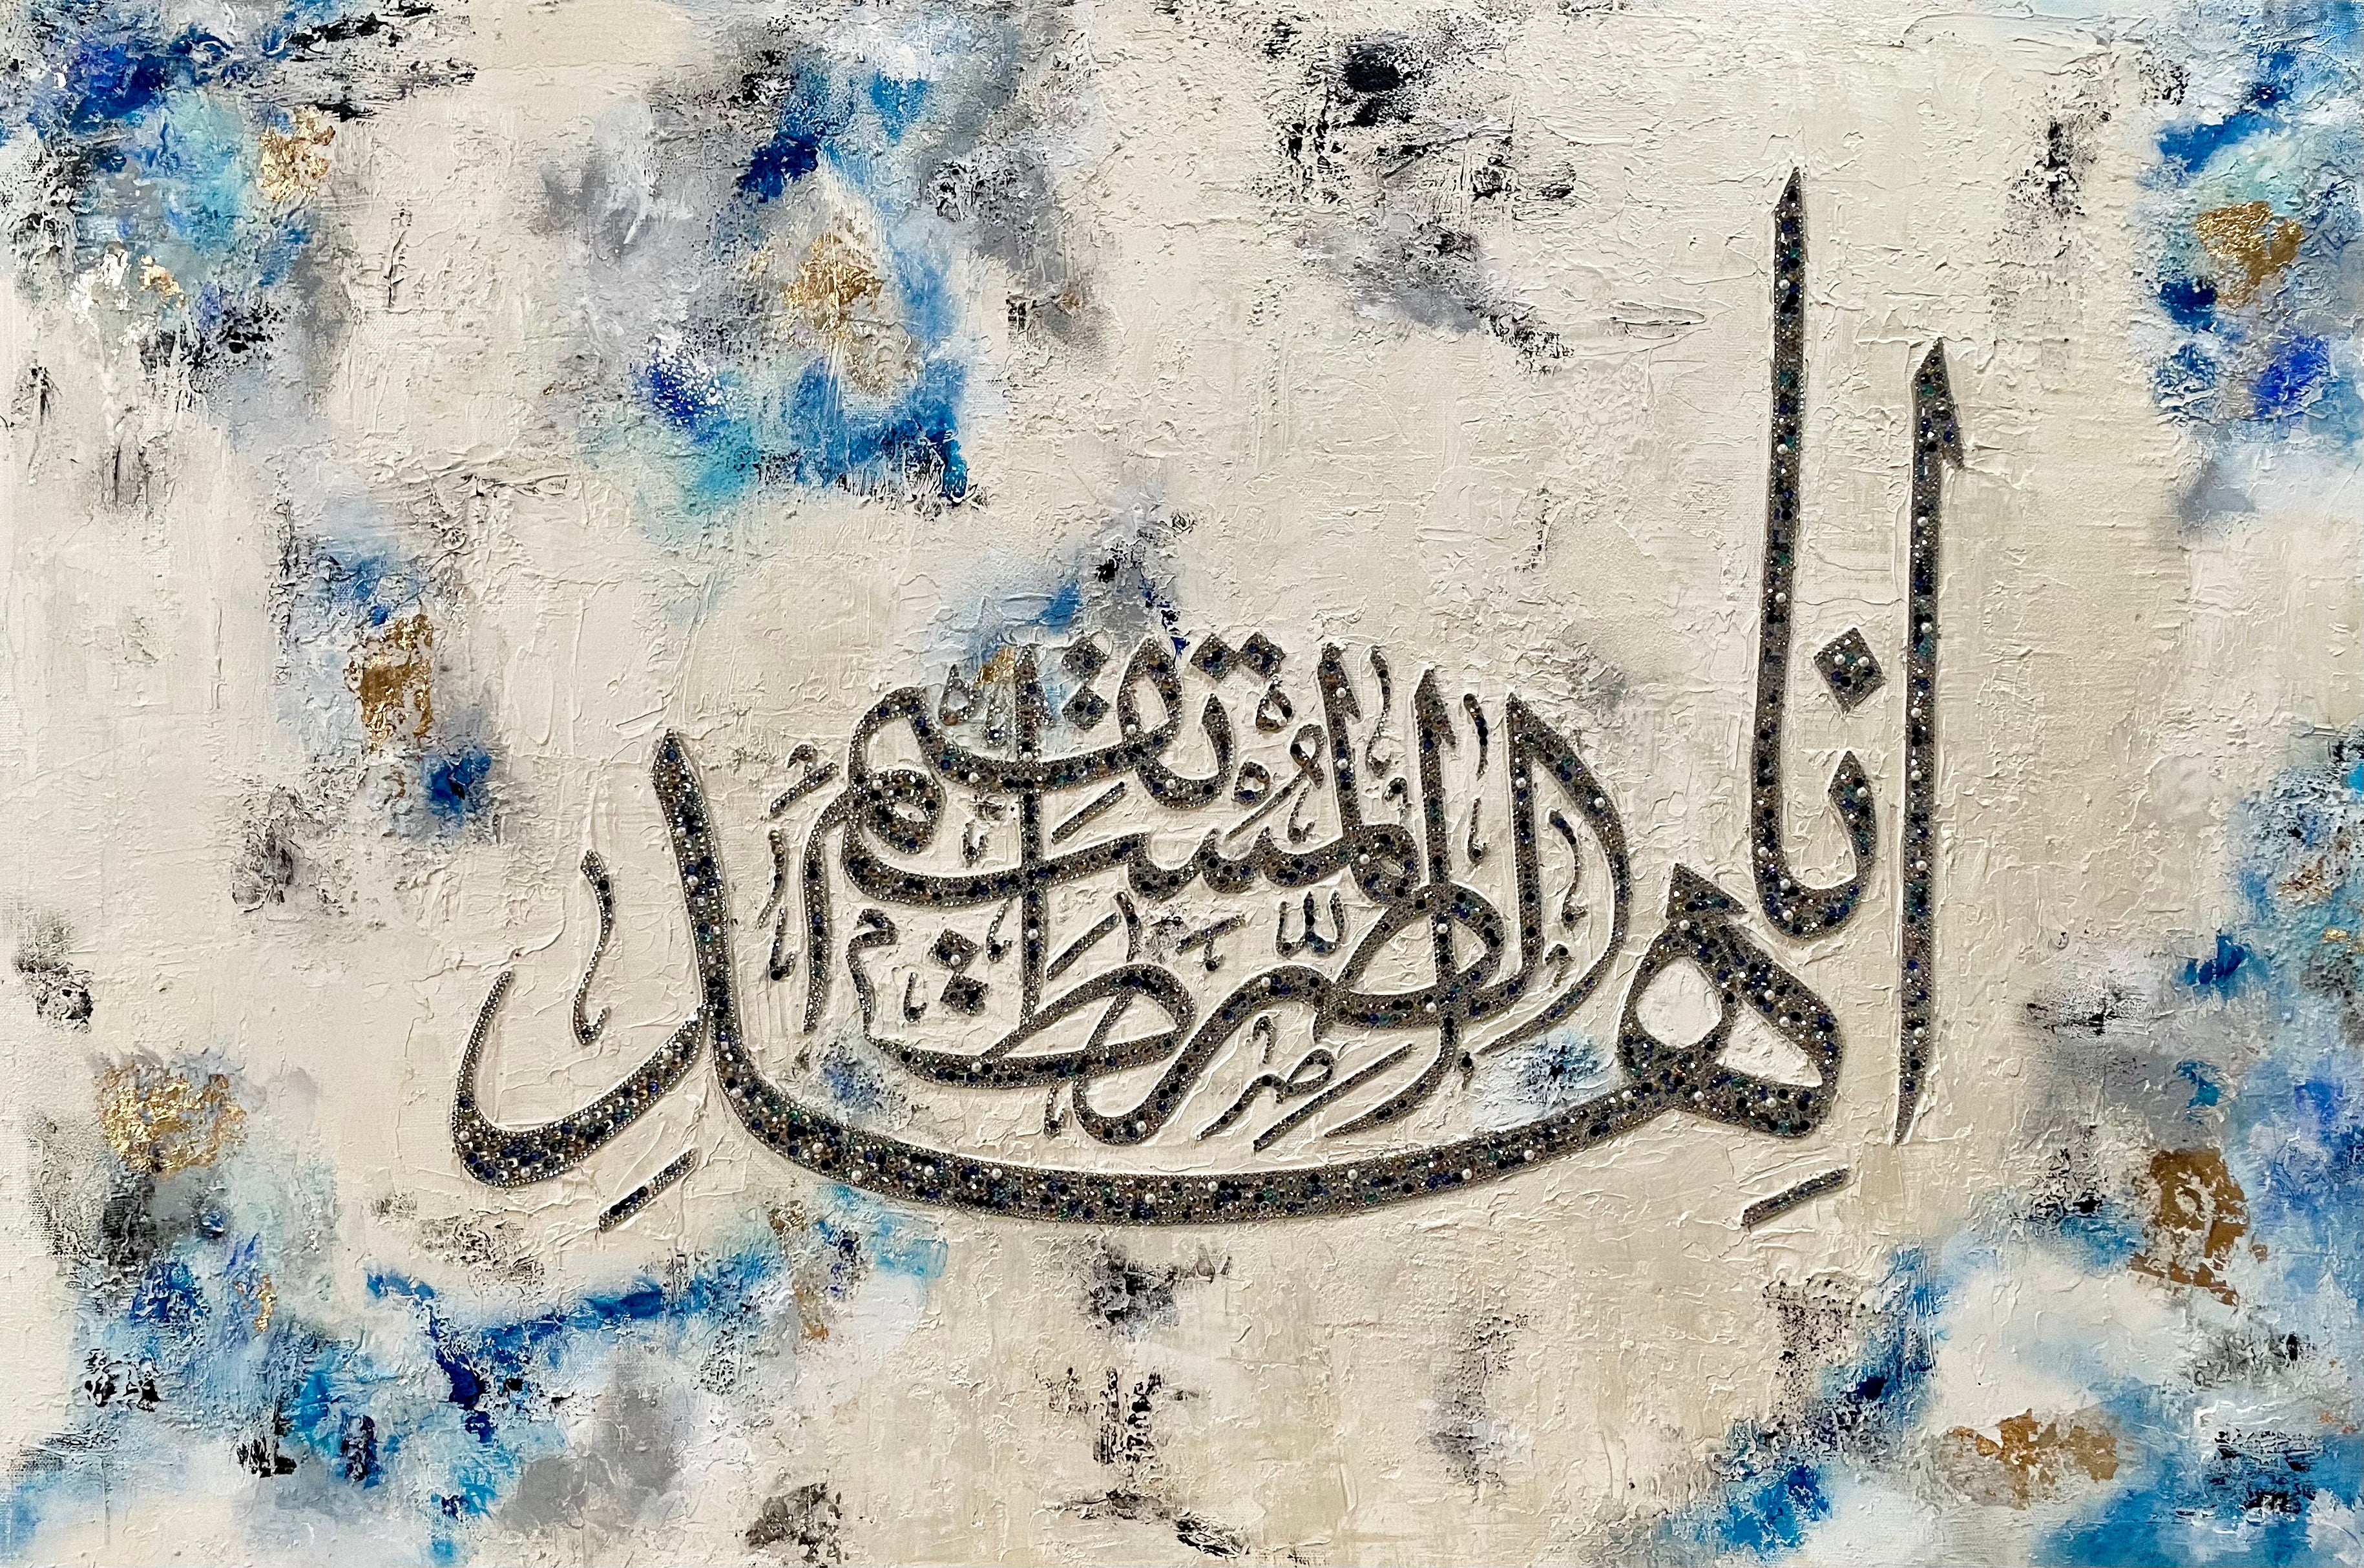 اهدنا الصرط المستقيم